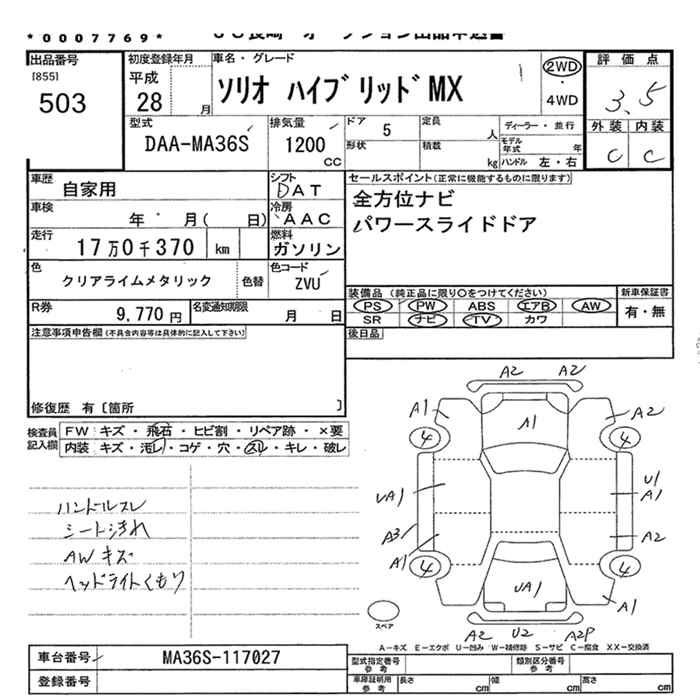 *0007769*
出品番号
[855]
503
初度登録年月
平成
28 月
車名・グレード
ソリオ ハイブリッド MX
2WD
・
4WD
評価点
3.5
外装 内装
C C
型式
DAA-MA36S
排気量
1200
CC
ドア 5
形状
定員 人
積載 kg
ディーラー・並行
モデル年式 年
ハンドル 左・右
車歴 自家用
シフト
DAT
車検 年 月( 日)
冷房
AAC
走行 17万0千370 km
燃料
ガソリン
色 クリアライムメタリック 色替
色コード
ZVU
R券 9,770 円
名変通知期限
月 日
セールスポイント(正常に機能するものに限ります)
全方位ナビ
パワースライドドア
装備品 (純正品に限り○をつけてください)
PS PW ABS エアB AW
SR ナビ TV カワ
新車保証書
有・無
後日品
注意事項申告欄(不具合内容等は具体的に記入して下さい)
修復歴 有〔箇所 〕
検査員
記入欄
FW キズ・飛石・ヒビ割・リペア跡・×要
内装 キズ・汚レ・コゲ・穴・スレ・キレ・破レ
ハンドルスレ
シート汚れ
AWキズ
ヘッドライトくもり
A2 A2
A1 A1 A2
4 4
UA1 U1
A1
A3 A2
A1
4 4
UA1
A1
A2 U2 A2P
スペア
A-キズ E-エクボ U-凹み W-補修跡 S-サビ C-腐食 XX-交換済
車台番号 MA36S-117027
登録番号
型式指定番号
参考
類別区分番号
参考
車庫証明用
参考
長さ cm
幅 cm
高さ cm